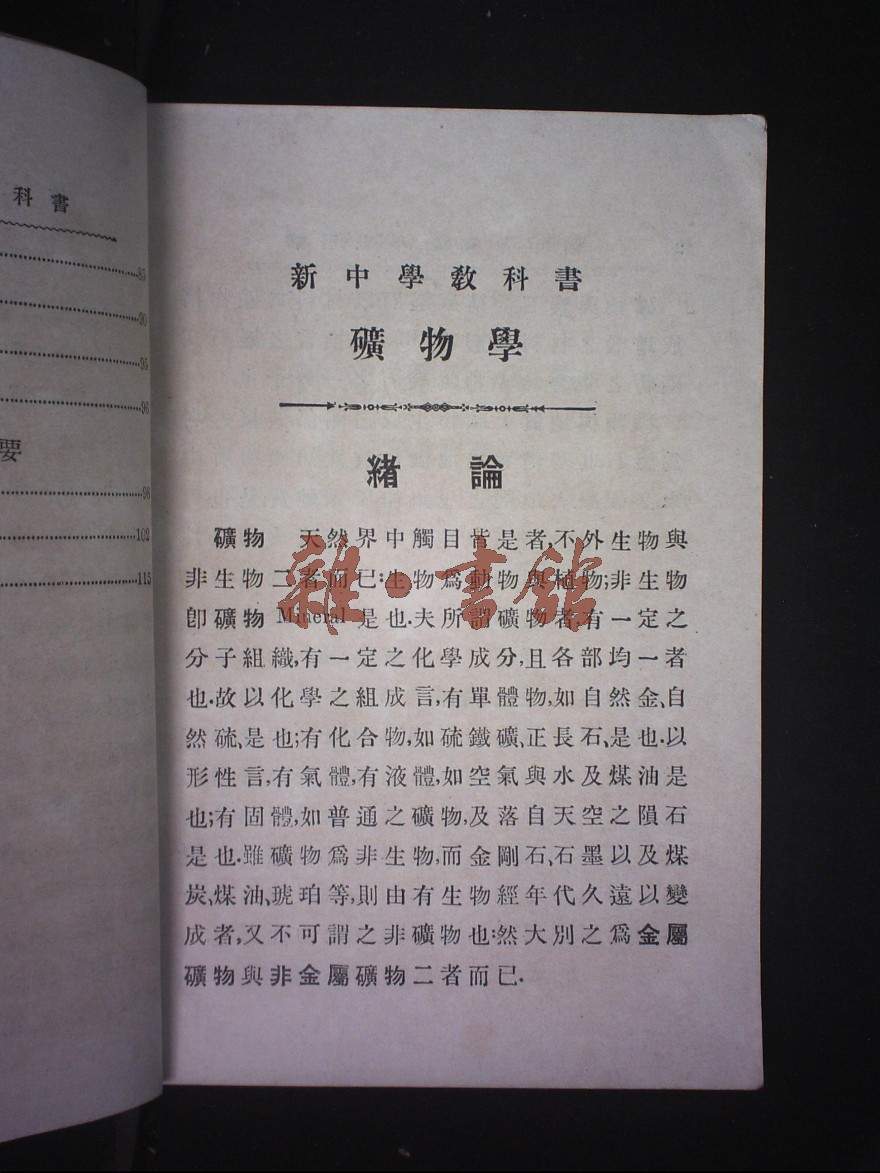 科書
85
90
95
96
要
98
102
115
新中學教科書
礦物學
緒論
礦物 天然界中觸目皆是者,不外生物與
非生物二者而已:生物爲動物與植物;非生物
卽礦物 Mineral 是也.夫所謂礦物者,有一定之
分子組織,有一定之化學成分,且各部均一者
也.故以化學之組成言,有單體物,如自然金、自
然硫、是也;有化合物,如硫鐵礦、正長石、是也.以
形性言,有氣體,有液體,如空氣與水及煤油是
也;有固體,如普通之礦物,及落自天空之隕石
是也.雖礦物爲非生物,而金剛石、石墨以及煤
炭、煤油、琥珀等,則由有生物經年代久遠以變
成者,又不可謂之非礦物也:然大別之爲金屬
礦物與非金屬礦物二者而已.
雜·書館